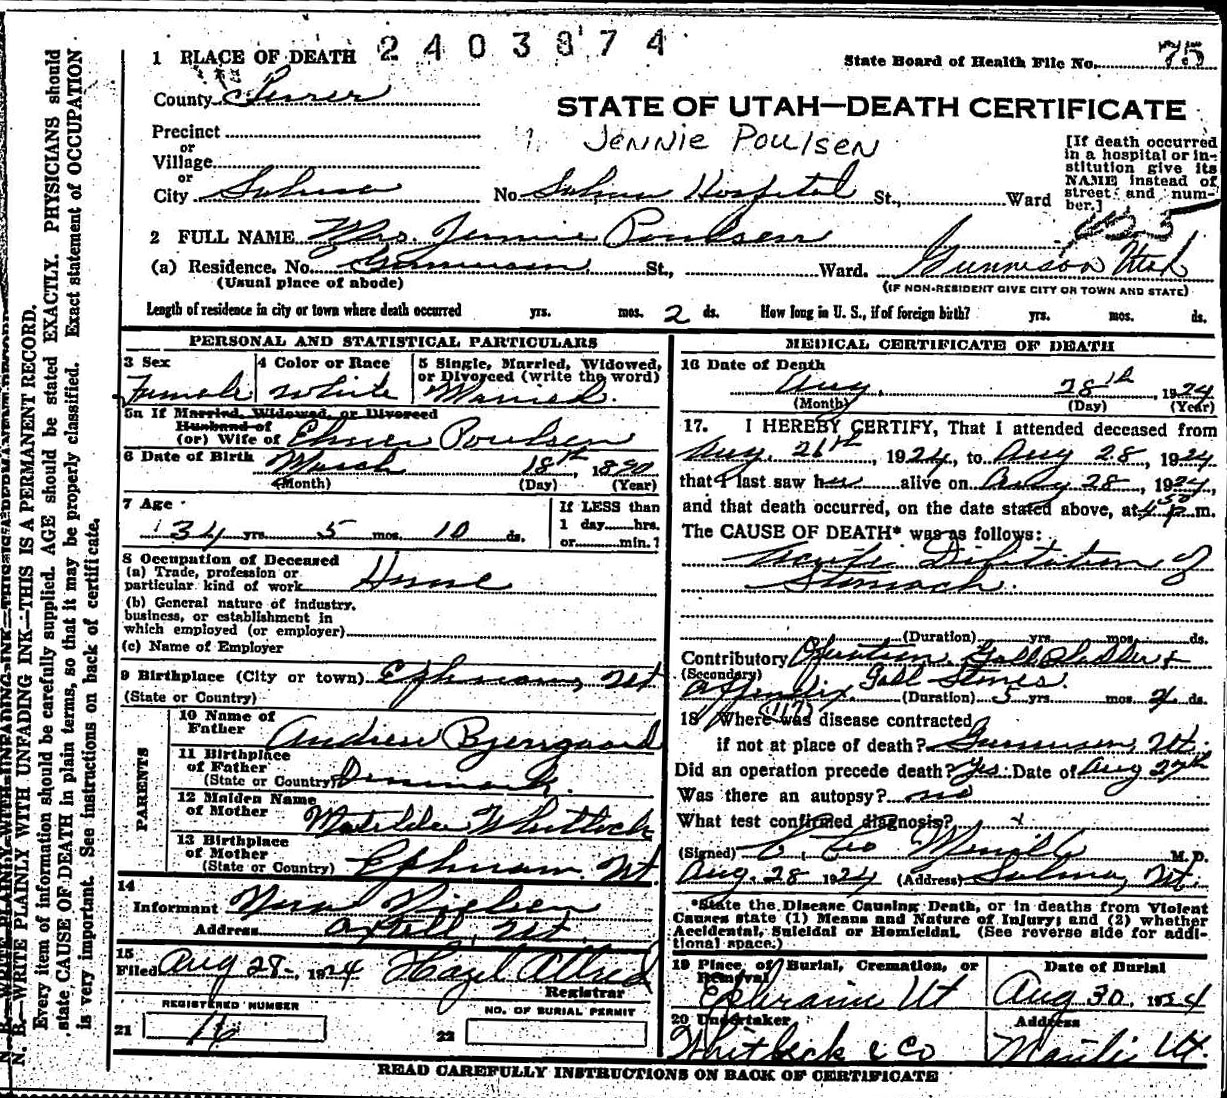 2403874
1 PLACE OF DEATH
State Board of Health File No. 75
County Sevier
STATE OF UTAH—DEATH CERTIFICATE
Precinct
or
Village
or
City Salina
Jennie Poulsen
No Salina Hospital St., Ward
[If death occurred
in a hospital or in-
stitution give its
NAME instead of
street and num-
ber.]
2 FULL NAME Mrs. Jennie Poulsen
(a) Residence. No. Gunnison St., Ward. Gunnison Utah
(Usual place of abode)
(IF NON-RESIDENT GIVE CITY OR TOWN AND STATE)
Length of residence in city or town where death occurred yrs. mos. 2 ds. How long in U. S., if of foreign birth? yrs. mos. ds.
PERSONAL AND STATISTICAL PARTICULARS
3 Sex
Female
4 Color or Race
White
5 Single, Married, Widowed,
or Divorced (write the word)
Married.
5a If Married, Widowed, or Divorced
Husband of
(or) Wife of Elmer Poulsen
6 Date of Birth March 18th, 1890
(Month) (Day) (Year)
7 Age
34 yrs. 5 mos. 10 ds.
If LESS than
1 day hrs.
or min.?
8 Occupation of Deceased
(a) Trade, profession or
particular kind of work
(b) General nature of industry,
business, or establishment in
which employed (or employer)
(c) Name of Employer
9 Birthplace (City or town) Ephraim, Ut
(State or Country)
PARENTS
10 Name of
Father Andrew Bjerregaard
11 Birthplace
of Father
(State or Country) Denmark
12 Maiden Name
of Mother Matilda Whitlock
13 Birthplace
of Mother
(State or Country) Ephraim, Ut.
14
Informant Nielsen
Address Axtell, Ut.
15
Filed Aug 28, 1924 Hazel Allred
Registrar
REGISTERED NUMBER
21 16
NO. OF BURIAL PERMIT
22
MEDICAL CERTIFICATE OF DEATH
16 Date of Death
Aug. 28th, 1924
(Month) (Day) (Year)
17. I HEREBY CERTIFY, That I attended deceased from
Aug. 26th, 1924, to Aug 28, 1924
that I last saw her alive on Aug 28, 1924,
and that death occurred, on the date stated above, at 4 50 p.m.
The CAUSE OF DEATH* was as follows:
Acute Dilitation of
Stomach.
(Duration) yrs. mos. ds.
Contributory Operation, Gall Bladder &
(Secondary)
Appendix Gall Stones.
(Duration) 5 yrs. mos. 2 ds.
(117)
18 Where was disease contracted
if not at place of death? Gunnison Ut.
Did an operation precede death? Yes. Date of Aug 27th
Was there an autopsy? no
What test confirmed diagnosis? x
(Signed) C. Leo Merrill M. D.
Aug. 28 1924 (Address) Salina, Ut.
*State the Disease Causing Death, or in deaths from Violent
Causes state (1) Means and Nature of Injury; and (2) whether
Accidental, Suicidal or Homicidal. (See reverse side for addi-
tional space.)
19 Place of Burial, Cremation, or
Removal
Ephraim Ut
Date of Burial
Aug 30, 1924
20 Undertaker
Whitbeck & Co
Address
Manti Ut.
READ CAREFULLY INSTRUCTIONS ON BACK OF CERTIFICATE
N. B.—WRITE PLAINLY WITH UNFADING INK—THIS IS A PERMANENT RECORD.
Every item of information should be carefully supplied. AGE should be stated EXACTLY. PHYSICIANS should
state CAUSE OF DEATH in plain terms, so that it may be properly classified. Exact statement of OCCUPATION
is very important. See instructions on back of certificate.